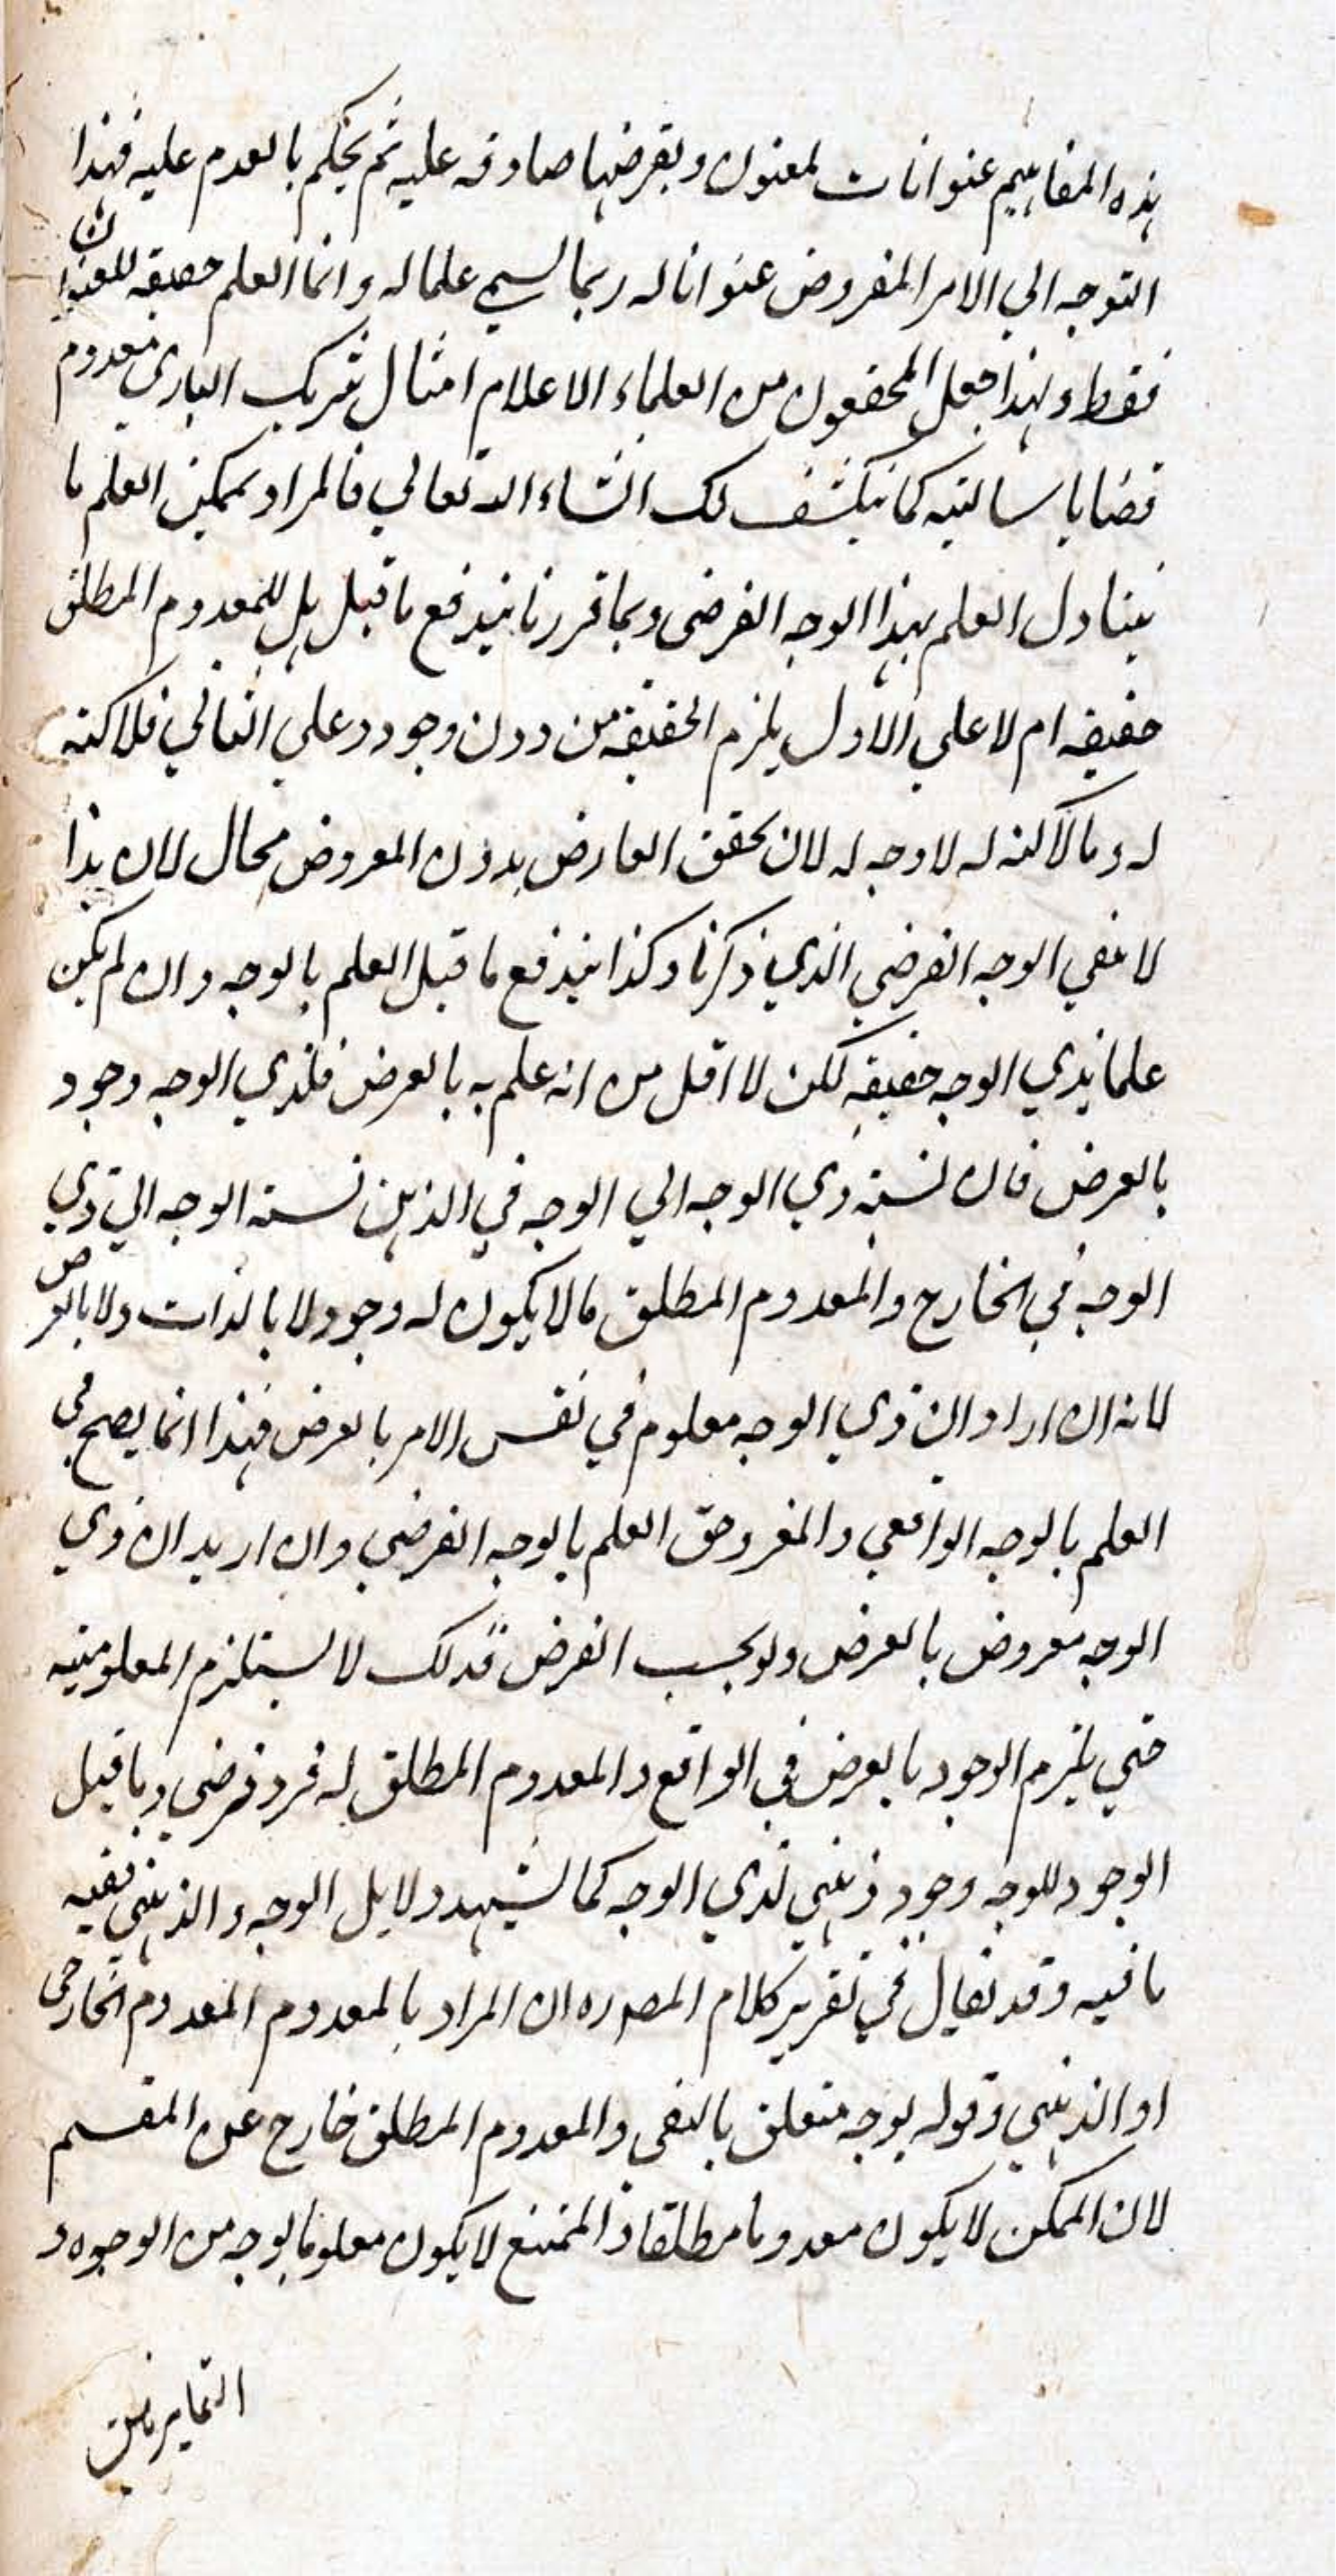 هذه المفاهيم عنوانات لمعنون ويفرضها صادقه عليه ثم يحكم بالعدم عليه فهذا
التوجه الي الامر المفروض عنوانا له ربما يسمي علما له وانما العلم حقيقه للعنوان
فقط ولهذا جعل المحققون من العلماء الاعلام امثال شريك الباري معدوم
قضايا سالبته كما ينكشف لك انشاء الله تعالي فالمراد بممكن العلم ما
يتناول العلم بهذا الوجه الفرضي وبما قررنا يندفع ما قيل هل للمعدوم المطلق
حقيقه ام لا علي الاول يلزم الحقيقه من دون وجود وعلي الثاني فلا كنه
له وما لا كنه له لا وجه له لان تحقق العارض بدون المعروض محال لان هذا
لا ينفي الوجه الفرضي الذي ذكرنا وكذا يندفع ما قيل العلم بالوجه وان لم يكن
علما بذي الوجه حقيقه لكن لا اقل من انه علم به بالعرض فلذي الوجه وجود
بالعرض فان نسبته ذي الوجه الي الوجه في الذهن نسبته الوجه الي ذي
الوجه في الخارج والمعدوم المطلق ما لا يكون له وجود لا بالذات ولا بالعرض
لانه ان اراد ان ذي الوجه معلوم في نفس الامر بالعرض فهذا انما يصح في
العلم بالوجه الواقعي والمفروض العلم بالوجه الفرضي وان اريد ان ذي
الوجه معروض بالعرض ولو بحسب الفرض فذلك لا يستلزم المعلوميته
حتي يلزم الوجود بالعرض في الواقع والمعدوم المطلق له فرد فرضي وما قيل
الوجود للوجه وجود ذهني لذي الوجه كما يشهد دلايل الوجه والذهني ففيه
ما فيه وقد يقال في تقرير كلام المصره ان المراد بالمعدوم المعدوم الخارجي
او الذهني وقوله بوجه متعلق بالنفي والمعدوم المطلق خارج عن المقسم
لان الممكن لا يكون معدوما مطلقا والممتنع لا يكون معلوما بوجه من الوجوه و